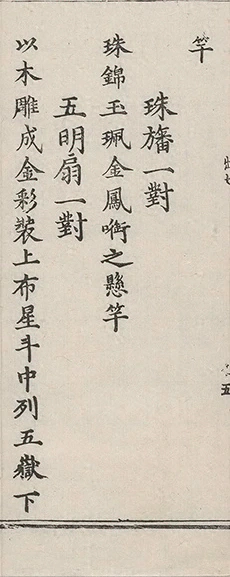 竿
珠旛一對
珠錦玉珮金鳳㘅之懸竿
五明扇一對
以木雕成金彩裝上布星斗中列五嶽下
五